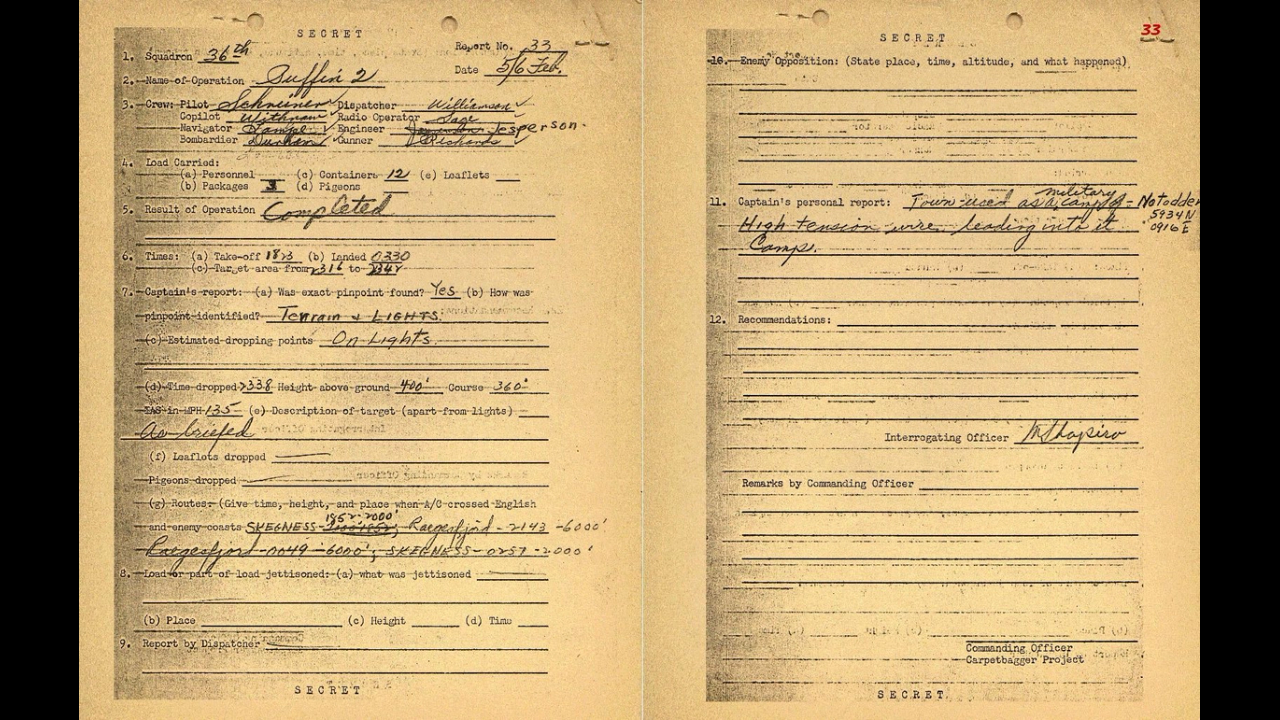 SECRET
1. Squadron 36th Report No. 33
Date 5/6 Feb.
2. Name of Operation Puffin 2
3. Crew: Pilot Schreiner Dispatcher Williamson
Copilot Withrow Radio Operator Sage
Navigator Engineer Jesperson
Bombardier Durham Gunner Richards
4. Load Carried:
(a) Personnel (c) Containers 12 (e) Leaflets
(b) Packages 3 (d) Pigeons
5. Result of Operation Completed
6. Times: (a) Take-off 1823 (b) Landed 0330
(c) Target area from 2316 to 2341
7. Captain's report: (a) Was exact pinpoint found? Yes (b) How was
pinpoint identified? Terrain & LIGHTS.
(c) Estimated dropping points On Lights.
(d) Time dropped 2338 Height above ground 400' Course 360°
IAS in MPH 135 (e) Description of target (apart from lights)
As briefed
(f) Leaflets dropped
Pigeons dropped
(g) Routes: (Give time, height, and place when A/C crossed English
1852-2000'
and enemy coasts SKEGNESS - ; Raegefjord - 2143 - 6000'
Raegefjord - 0049 - 6000'; SKEGNESS - 0257 - 2000'
8. Load or part of load jettisoned: (a) what was jettisoned
(b) Place (c) Height (d) Time
9. Report by Dispatcher
SECRET
33
SECRET
10. Enemy Opposition: (State place, time, altitude, and what happened)
military
11. Captain's personal report: Town used as a camp - Notodden
5934 N
High tension wire leading into it 0916 E
Camp.
12. Recommendations:
Interrogating Officer M Shapiro
Remarks by Commanding Officer
Commanding Officer
Carpetbagger Project
SECRET